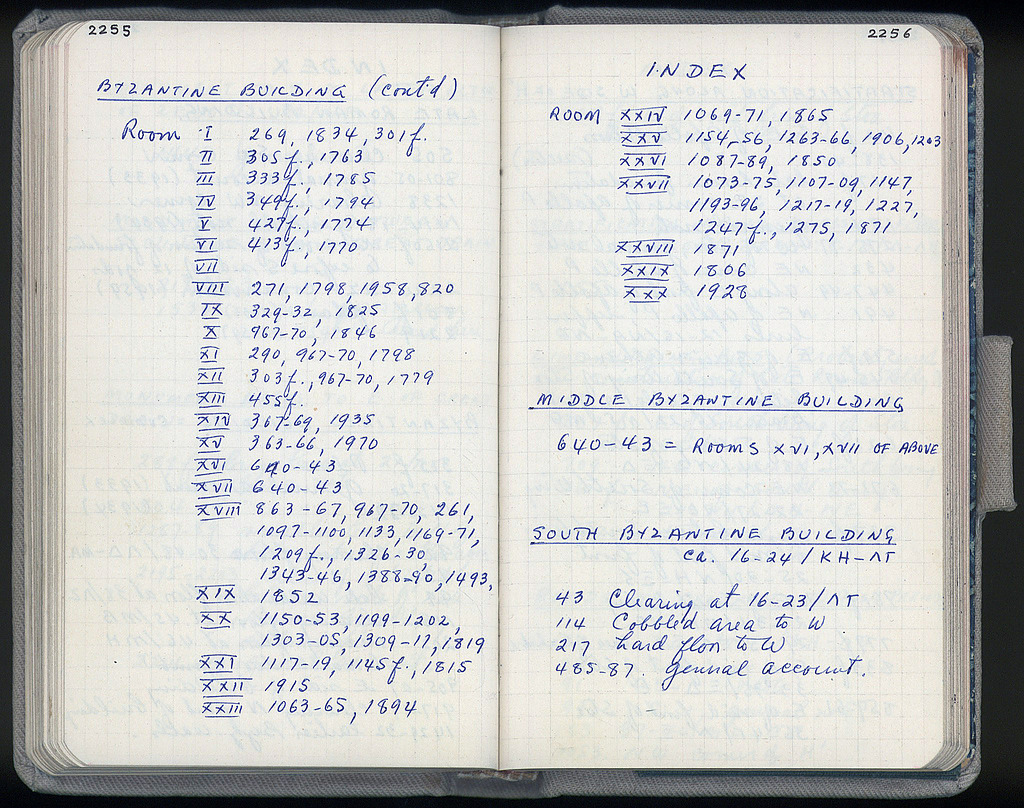 2255
BYZANTINE BUILDING (cont'd)
Room I 269, 1834, 301f.
II 305f., 1763
III 333f., 1785
IV 349f., 1794
V 427f., 1774
VI 413f., 1770
VII
VIII 271, 1798, 1958, 820
IX 329-32, 1825
X 967-70, 1846
XI 290, 967-70, 1798
XII 303f., 967-70, 1779
XIII 455f.
XIV 367-69, 1935
XV 363-66, 1970
XVI 640-43
XVII 640-43
XVIII 863-67, 967-70, 261,
1097-1100, 1133, 1169-71,
1209f., 1326-30,
1343-46, 1388-90, 1493,
XIX 1852
XX 1150-53, 1199-1202,
1303-05, 1309-17, 1819
XXI 1117-19, 1145f., 1815
XXII 1915
XXIII 1063-65, 1894
2256
INDEX
ROOM XXIV 1069-71, 1865
XXV 1154-56, 1263-66, 1906, 1203
XXVI 1087-89, 1850
XXVII 1073-75, 1107-09, 1147,
1193-96, 1217-19, 1227,
1247f., 1275, 1871
XXVIII 1871
XXIX 1806
XXX 1928
MIDDLE BYZANTINE BUILDING
640-43 = ROOMS XVI, XVII OF ABOVE
SOUTH BYZANTINE BUILDING
ca. 16-24/KH-ΛΤ
43 Clearing at 16-23/ΛΤ
114 Cobbled area to W
217 hard floor to W
485-87. general account.